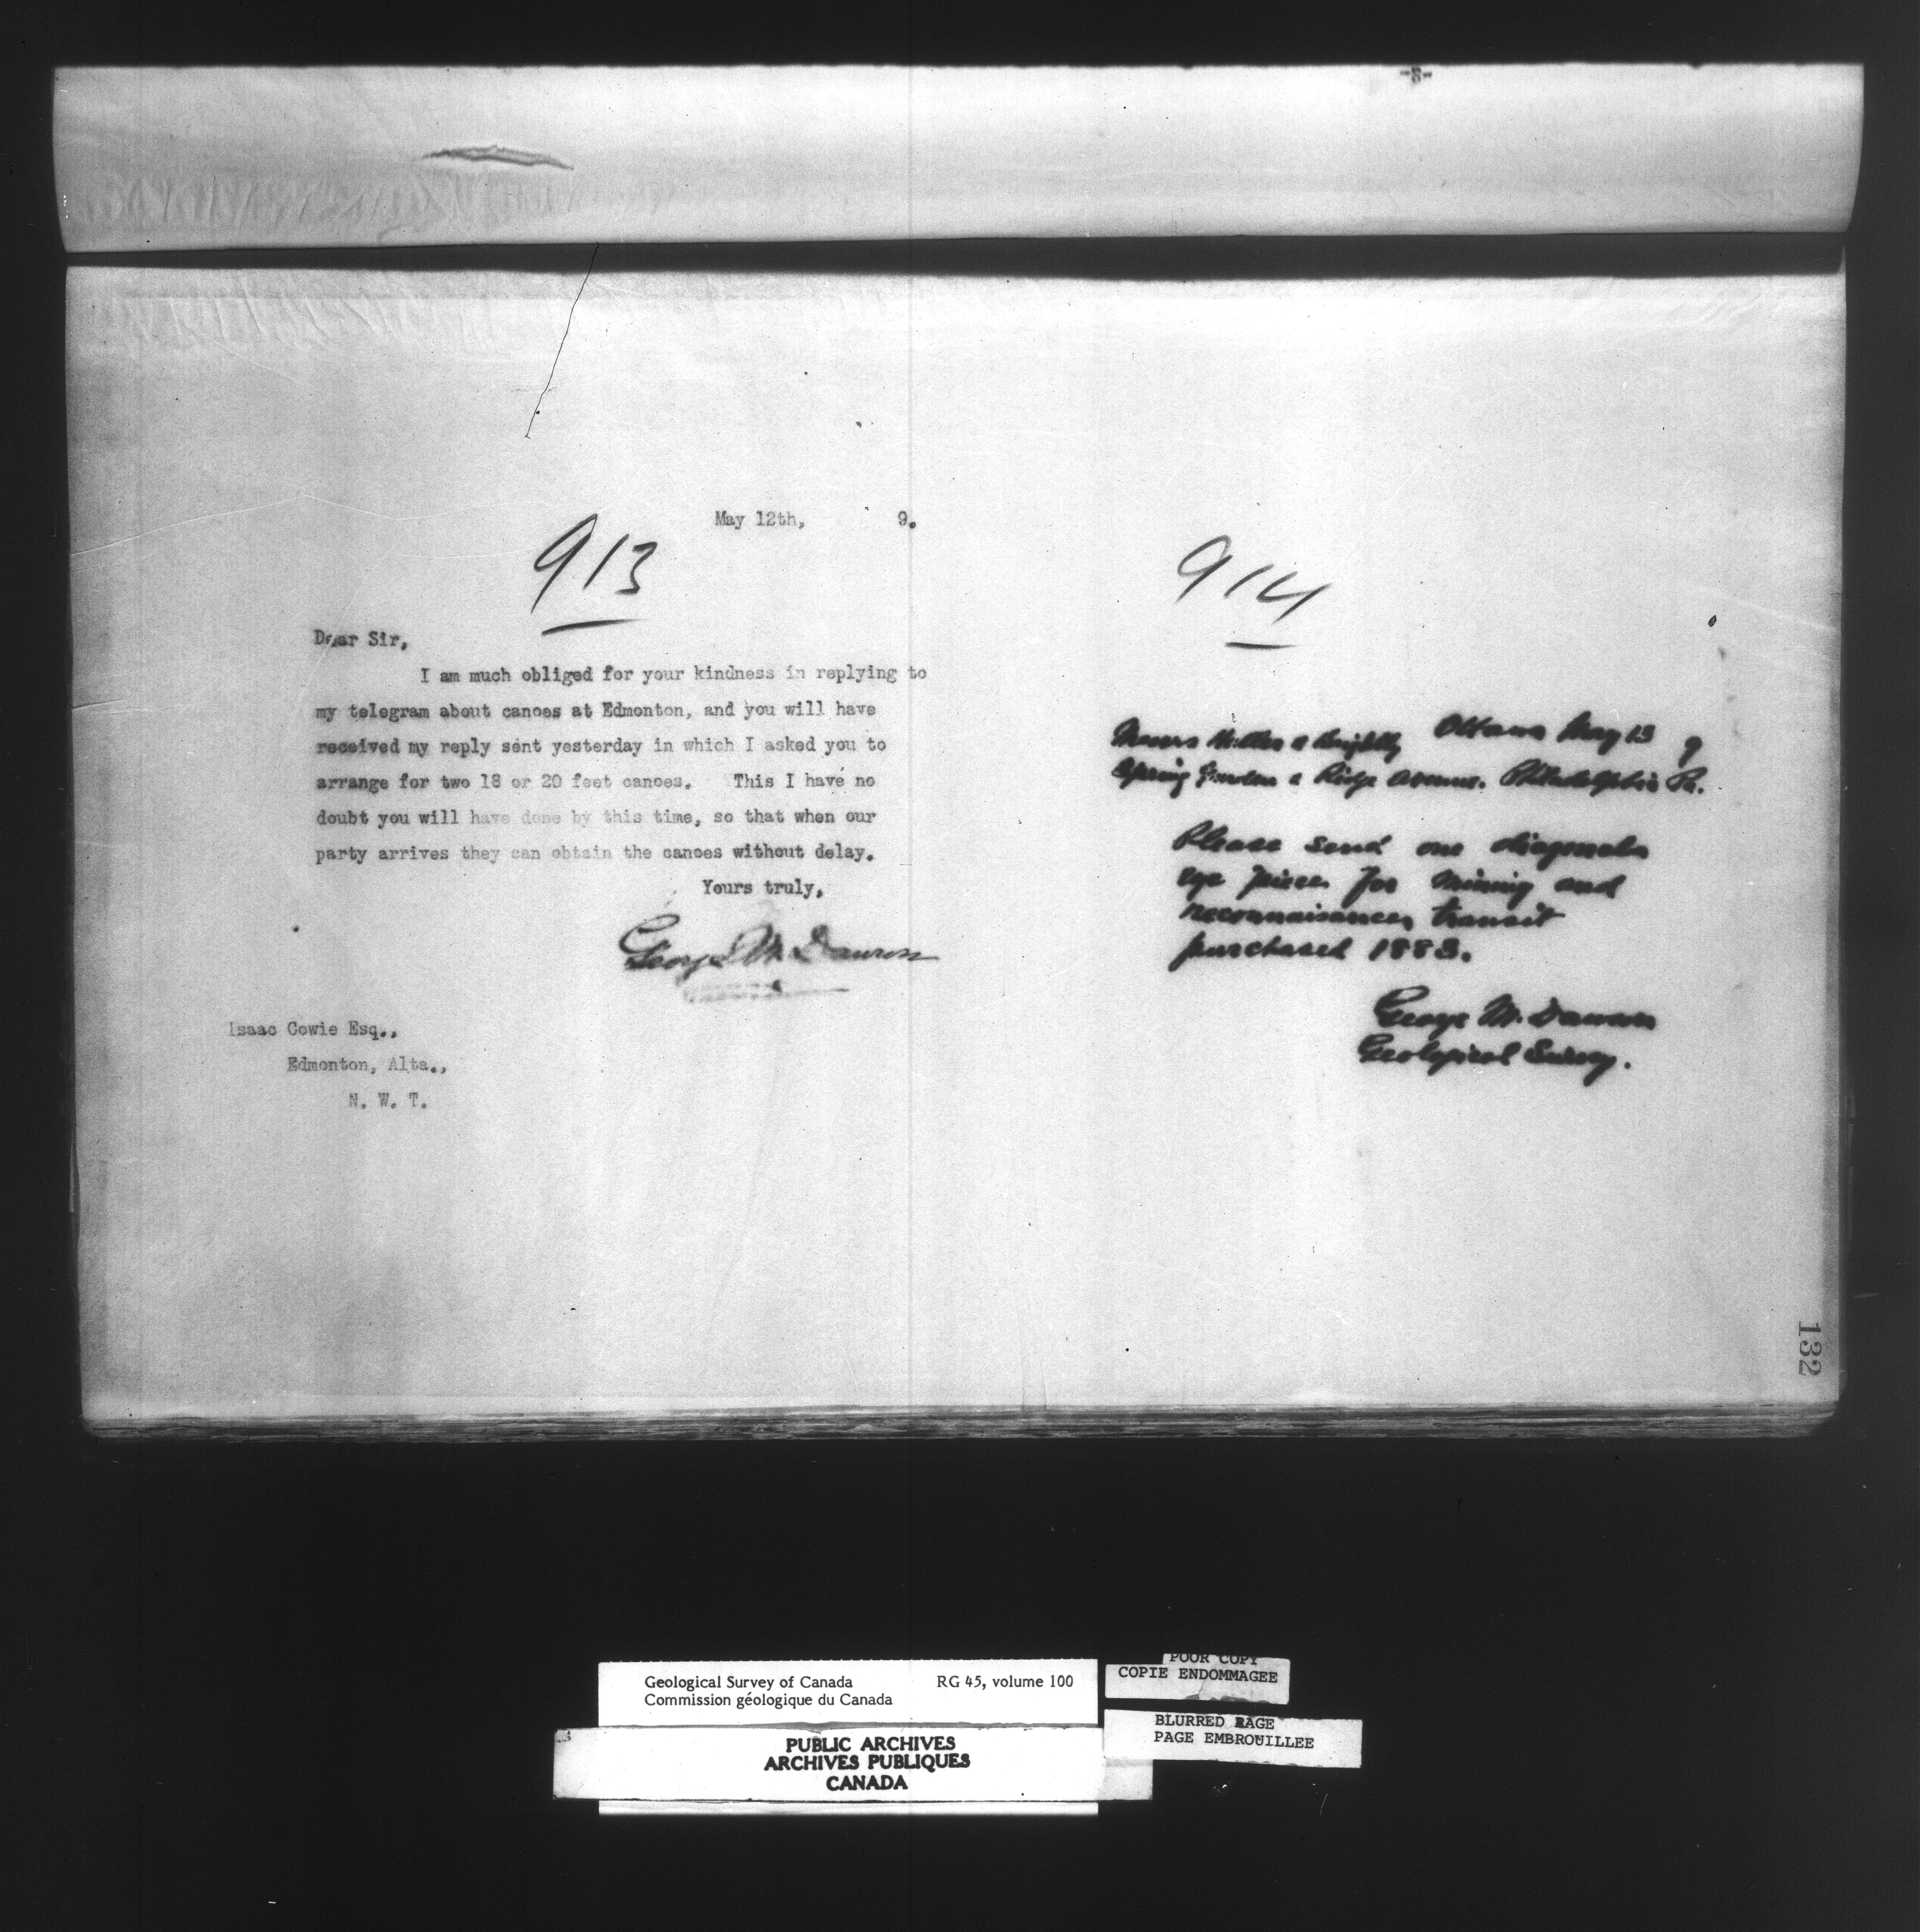 May 12th, 9.
913
Dear Sir,
I am much obliged for your kindness in replying to
my telegram about canoes at Edmonton, and you will have
received my reply sent yesterday in which I asked you to
arrange for two 18 or 20 feet canoes. This I have no
doubt you will have done by this time, so that when our
party arrives they can obtain the canoes without delay.
Yours truly,
George M. Dawson
Isaac Cowie Esq.,
Edmonton, Alta.,
N. W. T.
914
Ottawa May 13 9
Messrs Heller & Brightly
Spring Garden & Ridge Avenue. Philadelphia Pa.
Please send one diagonal
eye piece for mining and
reconnaisance transit
purchased 1883.
George M. Dawson
Geological Survey.
132
Geological Survey of Canada RG 45, volume 100
Commission géologique du Canada
PUBLIC ARCHIVES
ARCHIVES PUBLIQUES
CANADA
POOR COPY
COPIE ENDOMMAGEE
BLURRED PAGE
PAGE EMBROUILLEE